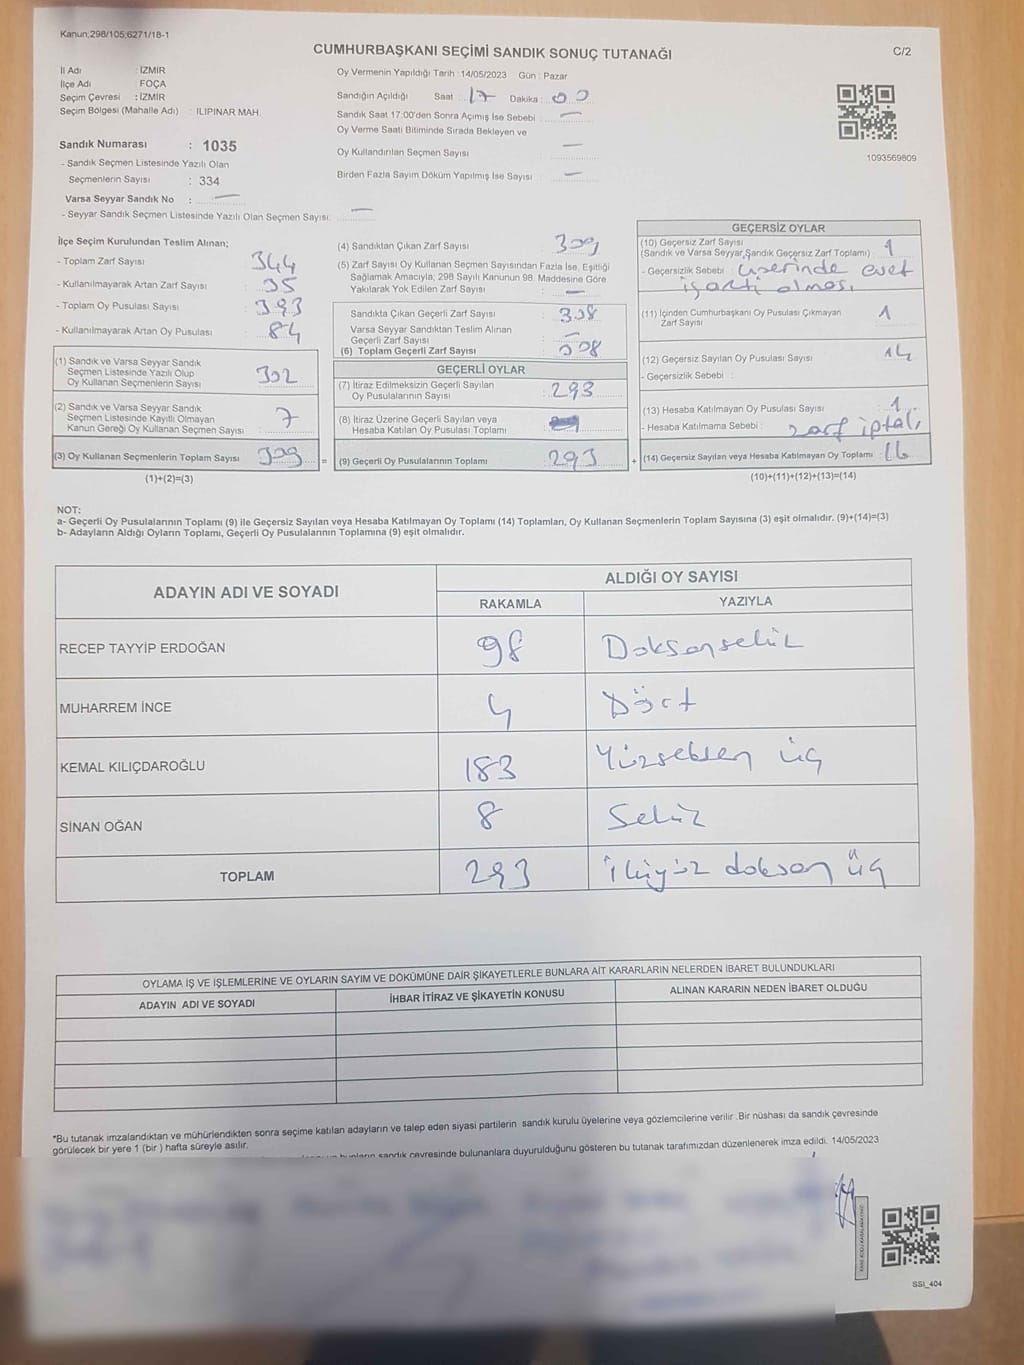 Kanun;298/105;6271/18-1
CUMHURBAŞKANI SEÇİMİ SANDIK SONUÇ TUTANAĞI
C/2
İl Adı : İZMİR
İlçe Adı : FOÇA
Seçim Çevresi : İZMİR
Seçim Bölgesi (Mahalle Adı) : ILIPINAR MAH.
Sandık Numarası : 1035
- Sandık Seçmen Listesinde Yazılı Olan
Seçmenlerin Sayısı : 334
Varsa Seyyar Sandık No : —
- Seyyar Sandık Seçmen Listesinde Yazılı Olan Seçmen Sayısı: —
Oy Vermenin Yapıldığı Tarih : 14/05/2023 Gün : Pazar
Sandığın Açıldığı Saat : 17 Dakika : 00
Sandık Saat 17:00'den Sonra Açımış İse Sebebi : —
Oy Verme Saati Bitiminde Sırada Bekleyen ve
Oy Kullandırılan Seçmen Sayısı : —
Birden Fazla Sayım Döküm Yapılmış İse Sayısı : —
1093569809
İlçe Seçim Kurulundan Teslim Alınan;
- Toplam Zarf Sayısı : 344
- Kullanılmayarak Artan Zarf Sayısı : 35
- Toplam Oy Pusulası Sayısı : 393
- Kullanılmayarak Artan Oy Pusulası : 84
(1) Sandık ve Varsa Seyyar Sandık
Seçmen Listesinde Yazılı Olup
Oy Kullanan Seçmenlerin Sayısı : 302
(2) Sandık ve Varsa Seyyar Sandık
Seçmen Listesinde Kayıtlı Olmayan
Kanun Gereği Oy Kullanan Seçmen Sayısı : 7
(3) Oy Kullanan Seçmenlerin Toplam Sayısı : 309
(1)+(2)=(3)
=
(4) Sandıktan Çıkan Zarf Sayısı : 309
(5) Zarf Sayısı Oy Kullanan Seçmen Sayısından Fazla İse, Eşitliği
Sağlamak Amacıyla, 298 Sayılı Kanunun 98. Maddesine Göre
Yakılarak Yok Edilen Zarf Sayısı : —
Sandıkta Çıkan Geçerli Zarf Sayısı : 308
Varsa Seyyar Sandıktan Teslim Alınan
Geçerli Zarf Sayısı : —
(6) Toplam Geçerli Zarf Sayısı : 308
GEÇERLİ OYLAR
(7) İtiraz Edilmeksizin Geçerli Sayılan
Oy Pusulalarının Sayısı : 293
(8) İtiraz Üzerine Geçerli Sayılan veya
Hesaba Katılan Oy Pusulası Toplamı :
(9) Geçerli Oy Pusulalarının Toplamı : 293
+
GEÇERSİZ OYLAR
(10) Geçersiz Zarf Sayısı
(Sandık ve Varsa Seyyar,Sandık Geçersiz Zarf Toplamı) : 1
- Geçersizlik Sebebi : üzerinde evet
işareti olması
(11) İçinden Cumhurbaşkanı Oy Pusulası Çıkmayan
Zarf Sayısı : 1
(12) Geçersiz Sayılan Oy Pusulası Sayısı : 14
- Geçersizlik Sebebi :
(13) Hesaba Katılmayan Oy Pusulası Sayısı : 1
- Hesaba Katılmama Sebebi : zarf iptali
(14) Geçersiz Sayılan veya Hesaba Katılmayan Oy Toplamı : 16
(10)+(11)+(12)+(13)=(14)
NOT:
a- Geçerli Oy Pusulalarının Toplamı (9) ile Geçersiz Sayılan veya Hesaba Katılmayan Oy Toplamı (14) Toplamları, Oy Kullanan Seçmenlerin Toplam Sayısına (3) eşit olmalıdır. (9)+(14)=(3)
b- Adayların Aldığı Oyların Toplamı, Geçerli Oy Pusulalarının Toplamına (9) eşit olmalıdır.
ADAYIN ADI VE SOYADI
ALDIĞI OY SAYISI
RAKAMLA YAZIYLA
RECEP TAYYİP ERDOĞAN 98 Doksansekiz
MUHARREM İNCE 4 Dört
KEMAL KILIÇDAROĞLU 183 Yüzseksen üç
SİNAN OĞAN 8 Sekiz
TOPLAM 293 İkiyüz doksan üç
OYLAMA İŞ VE İŞLEMLERİNE VE OYLARIN SAYIM VE DÖKÜMÜNE DAİR ŞİKAYETLERLE BUNLARA AİT KARARLARIN NELERDEN İBARET BULUNDUKLARI
ADAYIN ADI VE SOYADI İHBAR İTİRAZ VE ŞİKAYETİN KONUSU ALINAN KARARIN NEDEN İBARET OLDUĞU
*Bu tutanak imzalandıktan ve mühürlendikten sonra seçime katılan adayların ve talep eden siyasi partilerin sandık kurulu üyelerine veya gözlemcilerine verilir .Bir nüshası da sandık çevresinde
görülecek bir yere 1 (bir ) hafta süreyle asılır.
bunların sandık çevresinde bulunanlara duyurulduğunu gösteren bu tutanak tarafımızdan düzenlenerek imza edildi. 14/05/2023
SSI_404